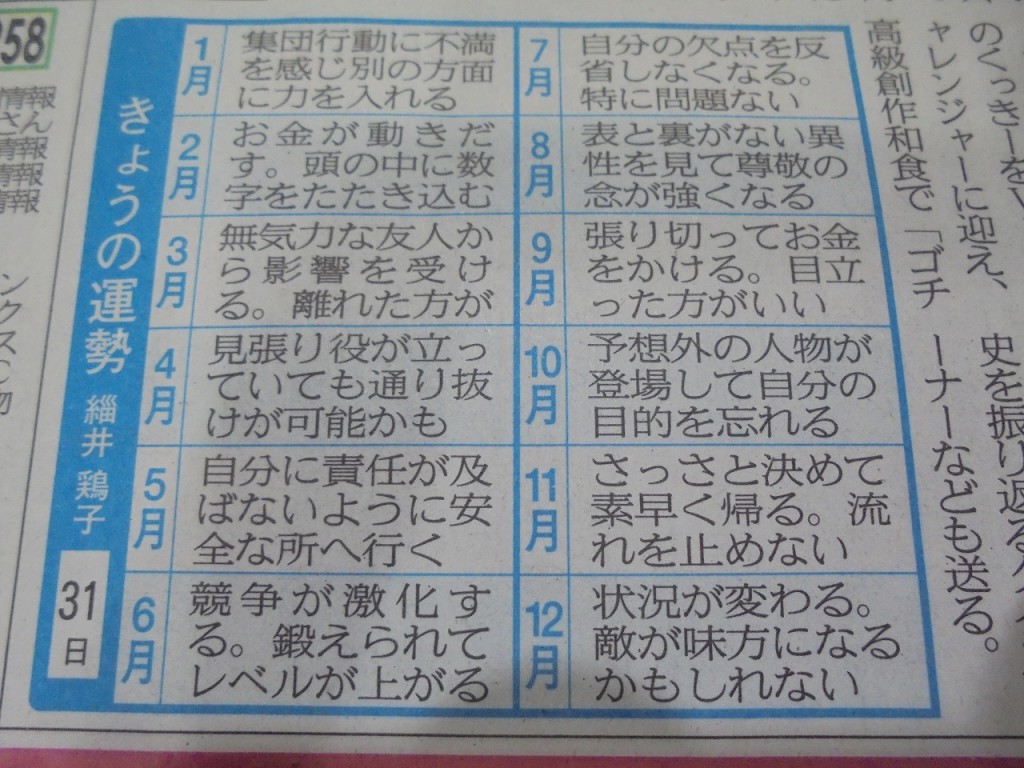 358
情報
さん
情報
情報
情報
ンクス
物
きょうの運勢
緇井 鶏子
31日
1月
集団行動に不満
を感じ別の方面
に力を入れる
2月
お金が動きだ
す。頭の中に数
字をたたき込む
3月
無気力な友人か
ら影響を受け
る。離れた方が
4月
見張り役が立っ
ていても通り抜
けが可能かも
5月
自分に責任が及
ばないように安
全な所へ行く
6月
競争が激化す
る。鍛えられて
レベルが上がる
7月
自分の欠点を反
省しなくなる。
特に問題ない
8月
表と裏がない異
性を見て尊敬の
念が強くなる
9月
張り切ってお金
をかける。目立
った方がいい
10月
予想外の人物が
登場して自分の
目的を忘れる
11月
さっさと決めて
素早く帰る。流
れを止めない
12月
状況が変わる。
敵が味方になる
かもしれない
のくっきーをV
ャレンジャーに迎え、
高級創作和食で「ゴチ
史を振り返る
ーナーなども送る。